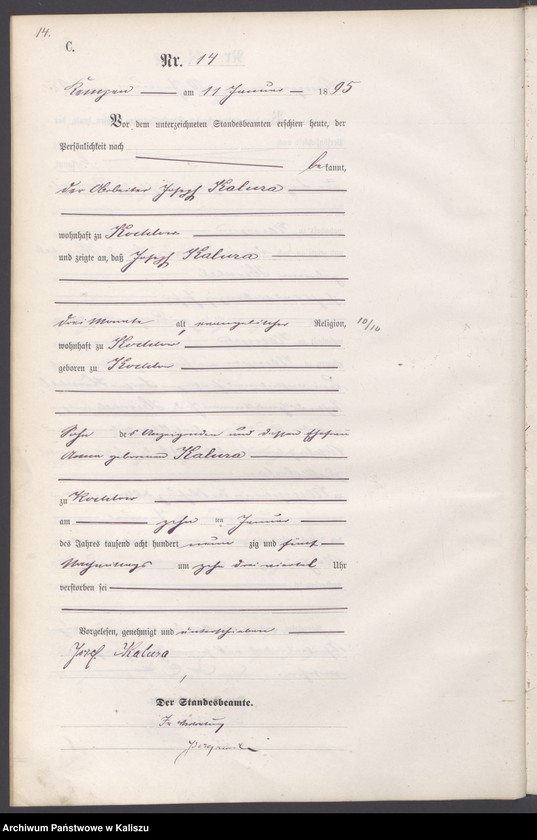 14.
C.
Nr. 14
Kempen am 11 Januar 1895
Vor dem unterzeichneten Standesbeamten erschien heute, der
Persönlichkeit nach
bekannt,
der Arbeiter Joseph Kalura
wohnhaft zu
und zeigte an, daß Joseph Kalura
drei Monate alt, evangelischer Religion, 10/10
wohnhaft zu
geboren zu
Sohn des Anzeigenden und dessen Ehefrau
geborenen Kalura
zu
am zehn ten Januar
des Jahres tausend acht hundert neun zig und fünf
Nachmittags um zehn dreiviertel Uhr
verstorben sei
Vorgelesen, genehmigt und unterschrieben
Josef Kalura
Der Standesbeamte.
In Vertretung
Archiwum Państwowe w Kaliszu